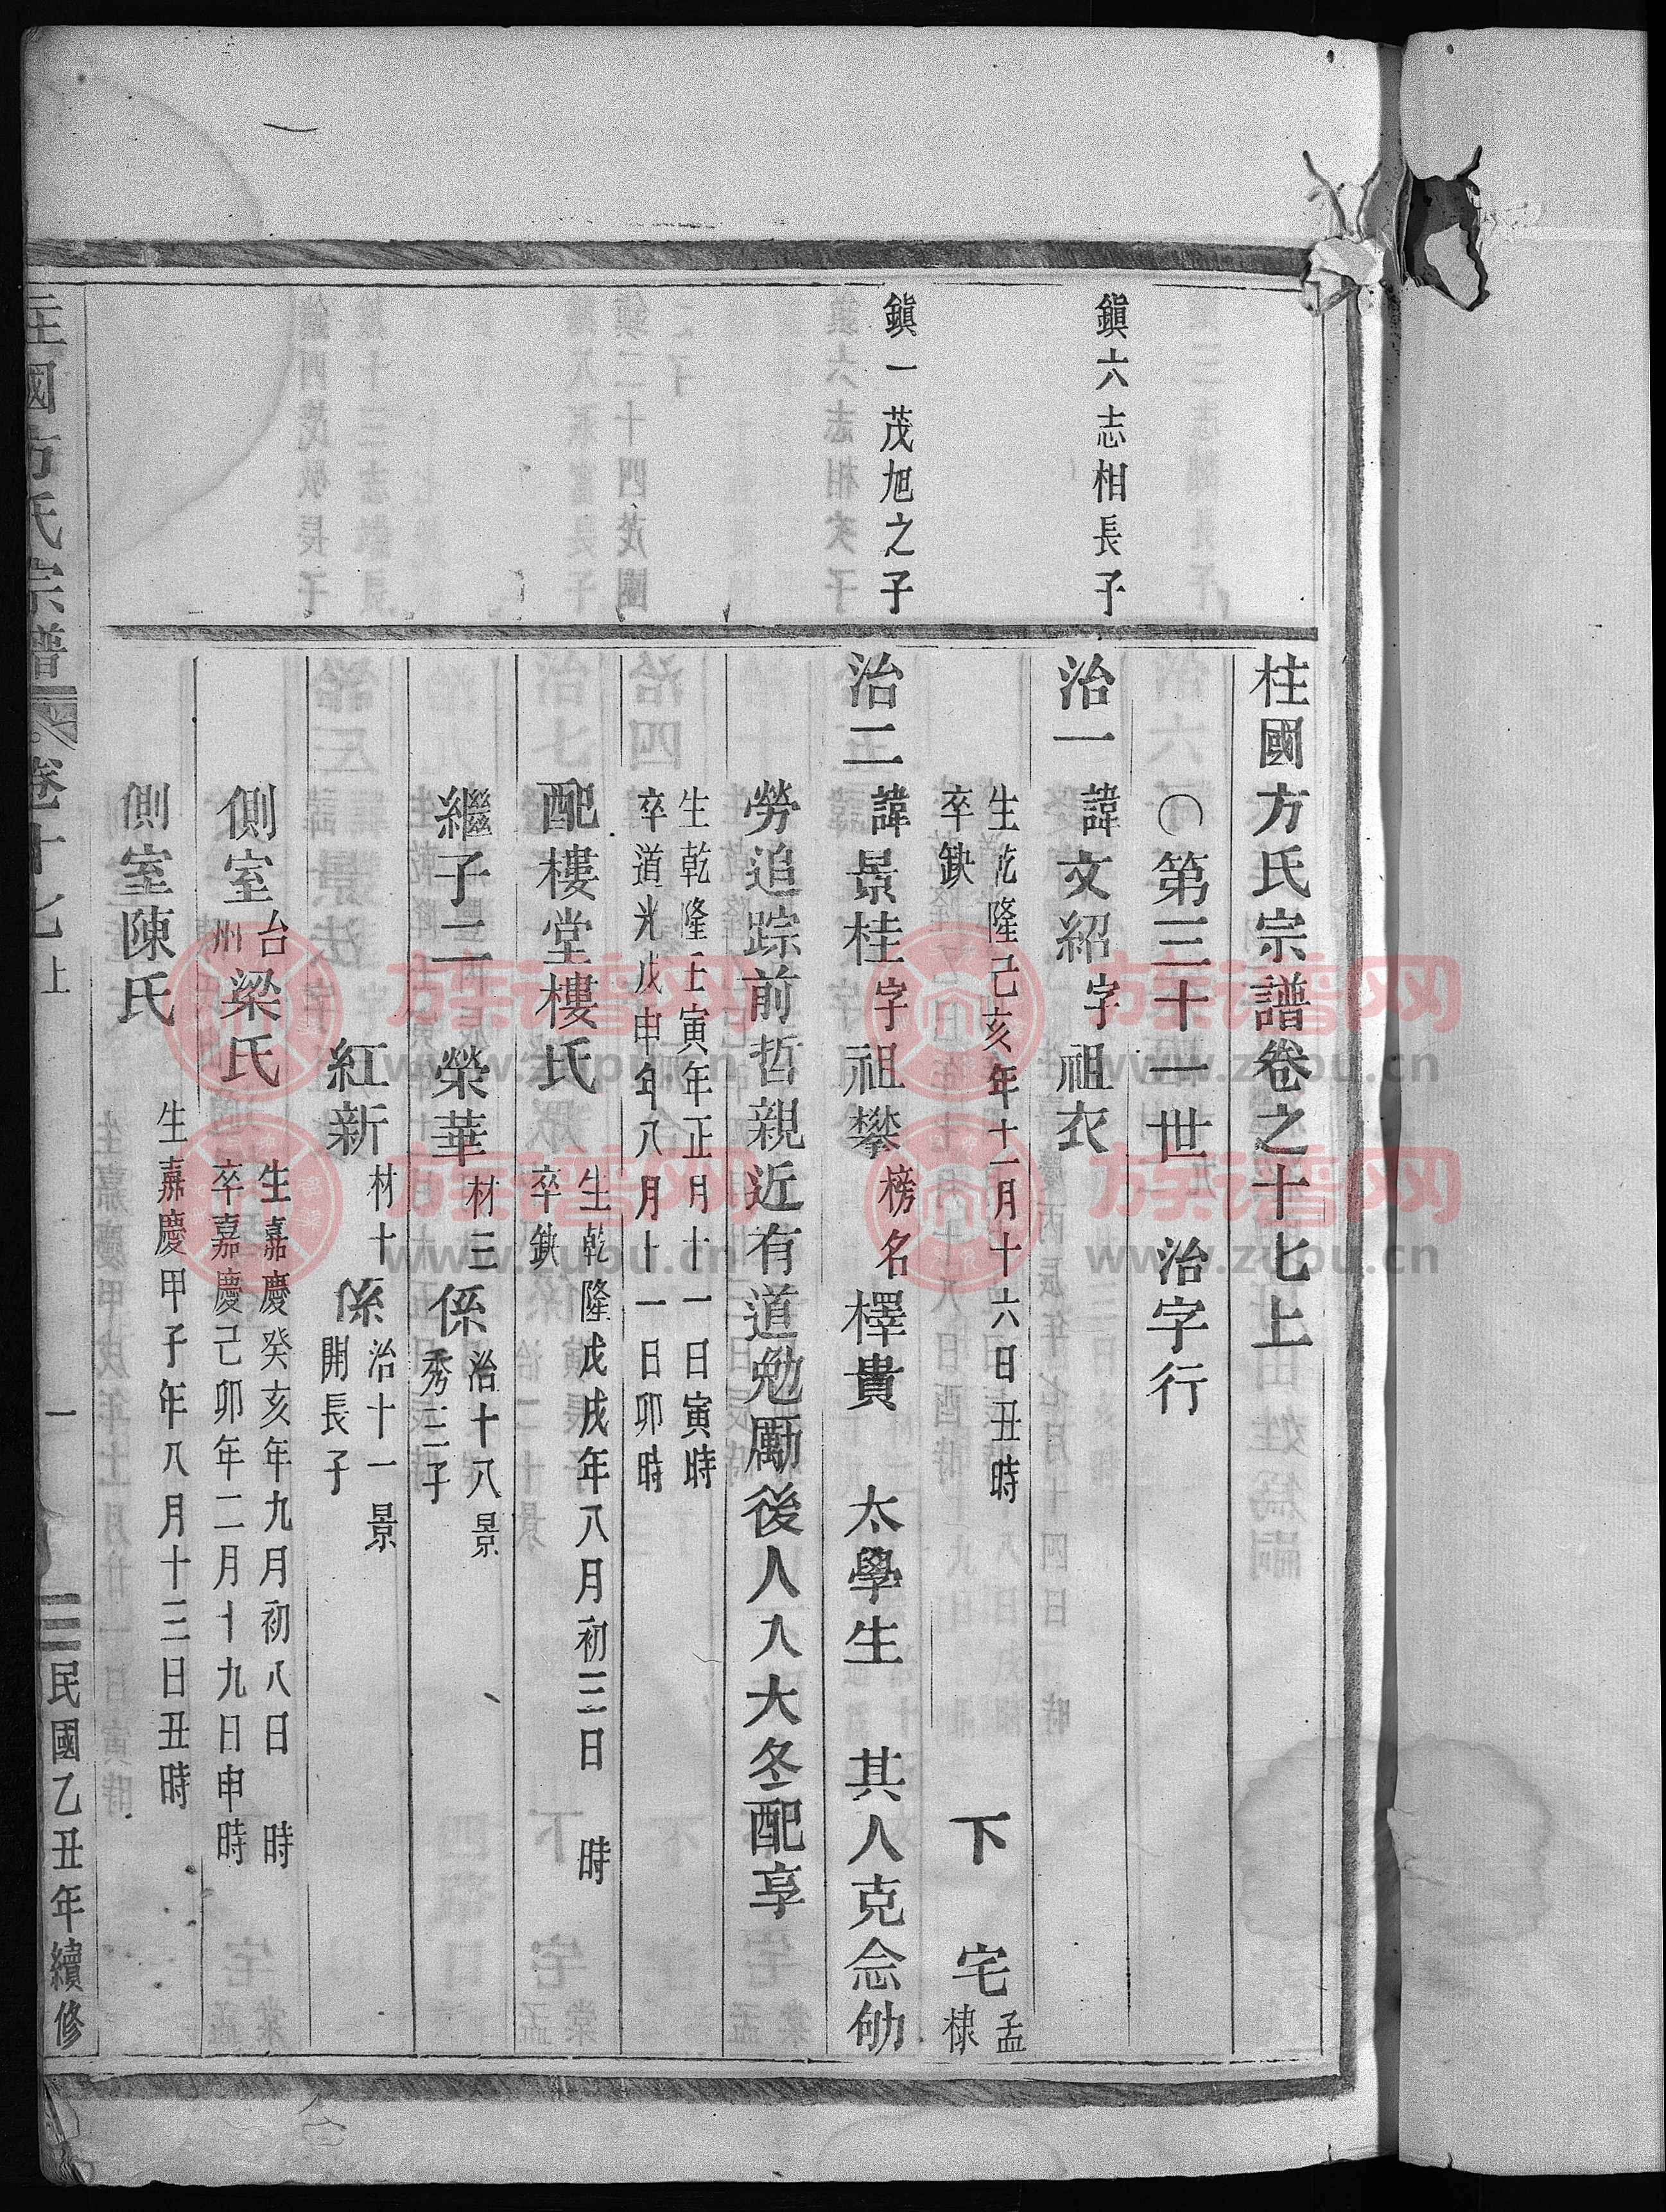 柱國方氏宗譜卷之十七上
〇第三十一世 治字行
鎮六志相長子
治一諱文紹字祖衣
生乾隆己亥年十一月十六日丑時
卒缺
下宅
孟
棣
鎮一茂旭之子
治二諱景桂字祖攀榜名檡貴 太學生 其人克念劬
勞追踪前哲親近有道勉勵後人入大冬配享
生乾隆壬寅年正月十一日寅時
卒道光戊申年八月十一日卯時
配樓堂樓氏
生乾隆戊戌年八月初三日 時
卒缺
繼子二 榮華材三係治十八景
秀三子
紅新材十係治十一景
開長子
側室台州梁氏
生嘉慶癸亥年九月初八日 時
卒嘉慶己卯年二月十九日申時
側室陳氏
生嘉慶甲子年八月十三日丑時
柱國方氏宗譜 卷十七上
一
民國乙丑年續修
族谱网
www.zupu.cn
族谱网
www.zupu.cn
族谱网
www.zupu.cn
族谱网
www.zupu.cn